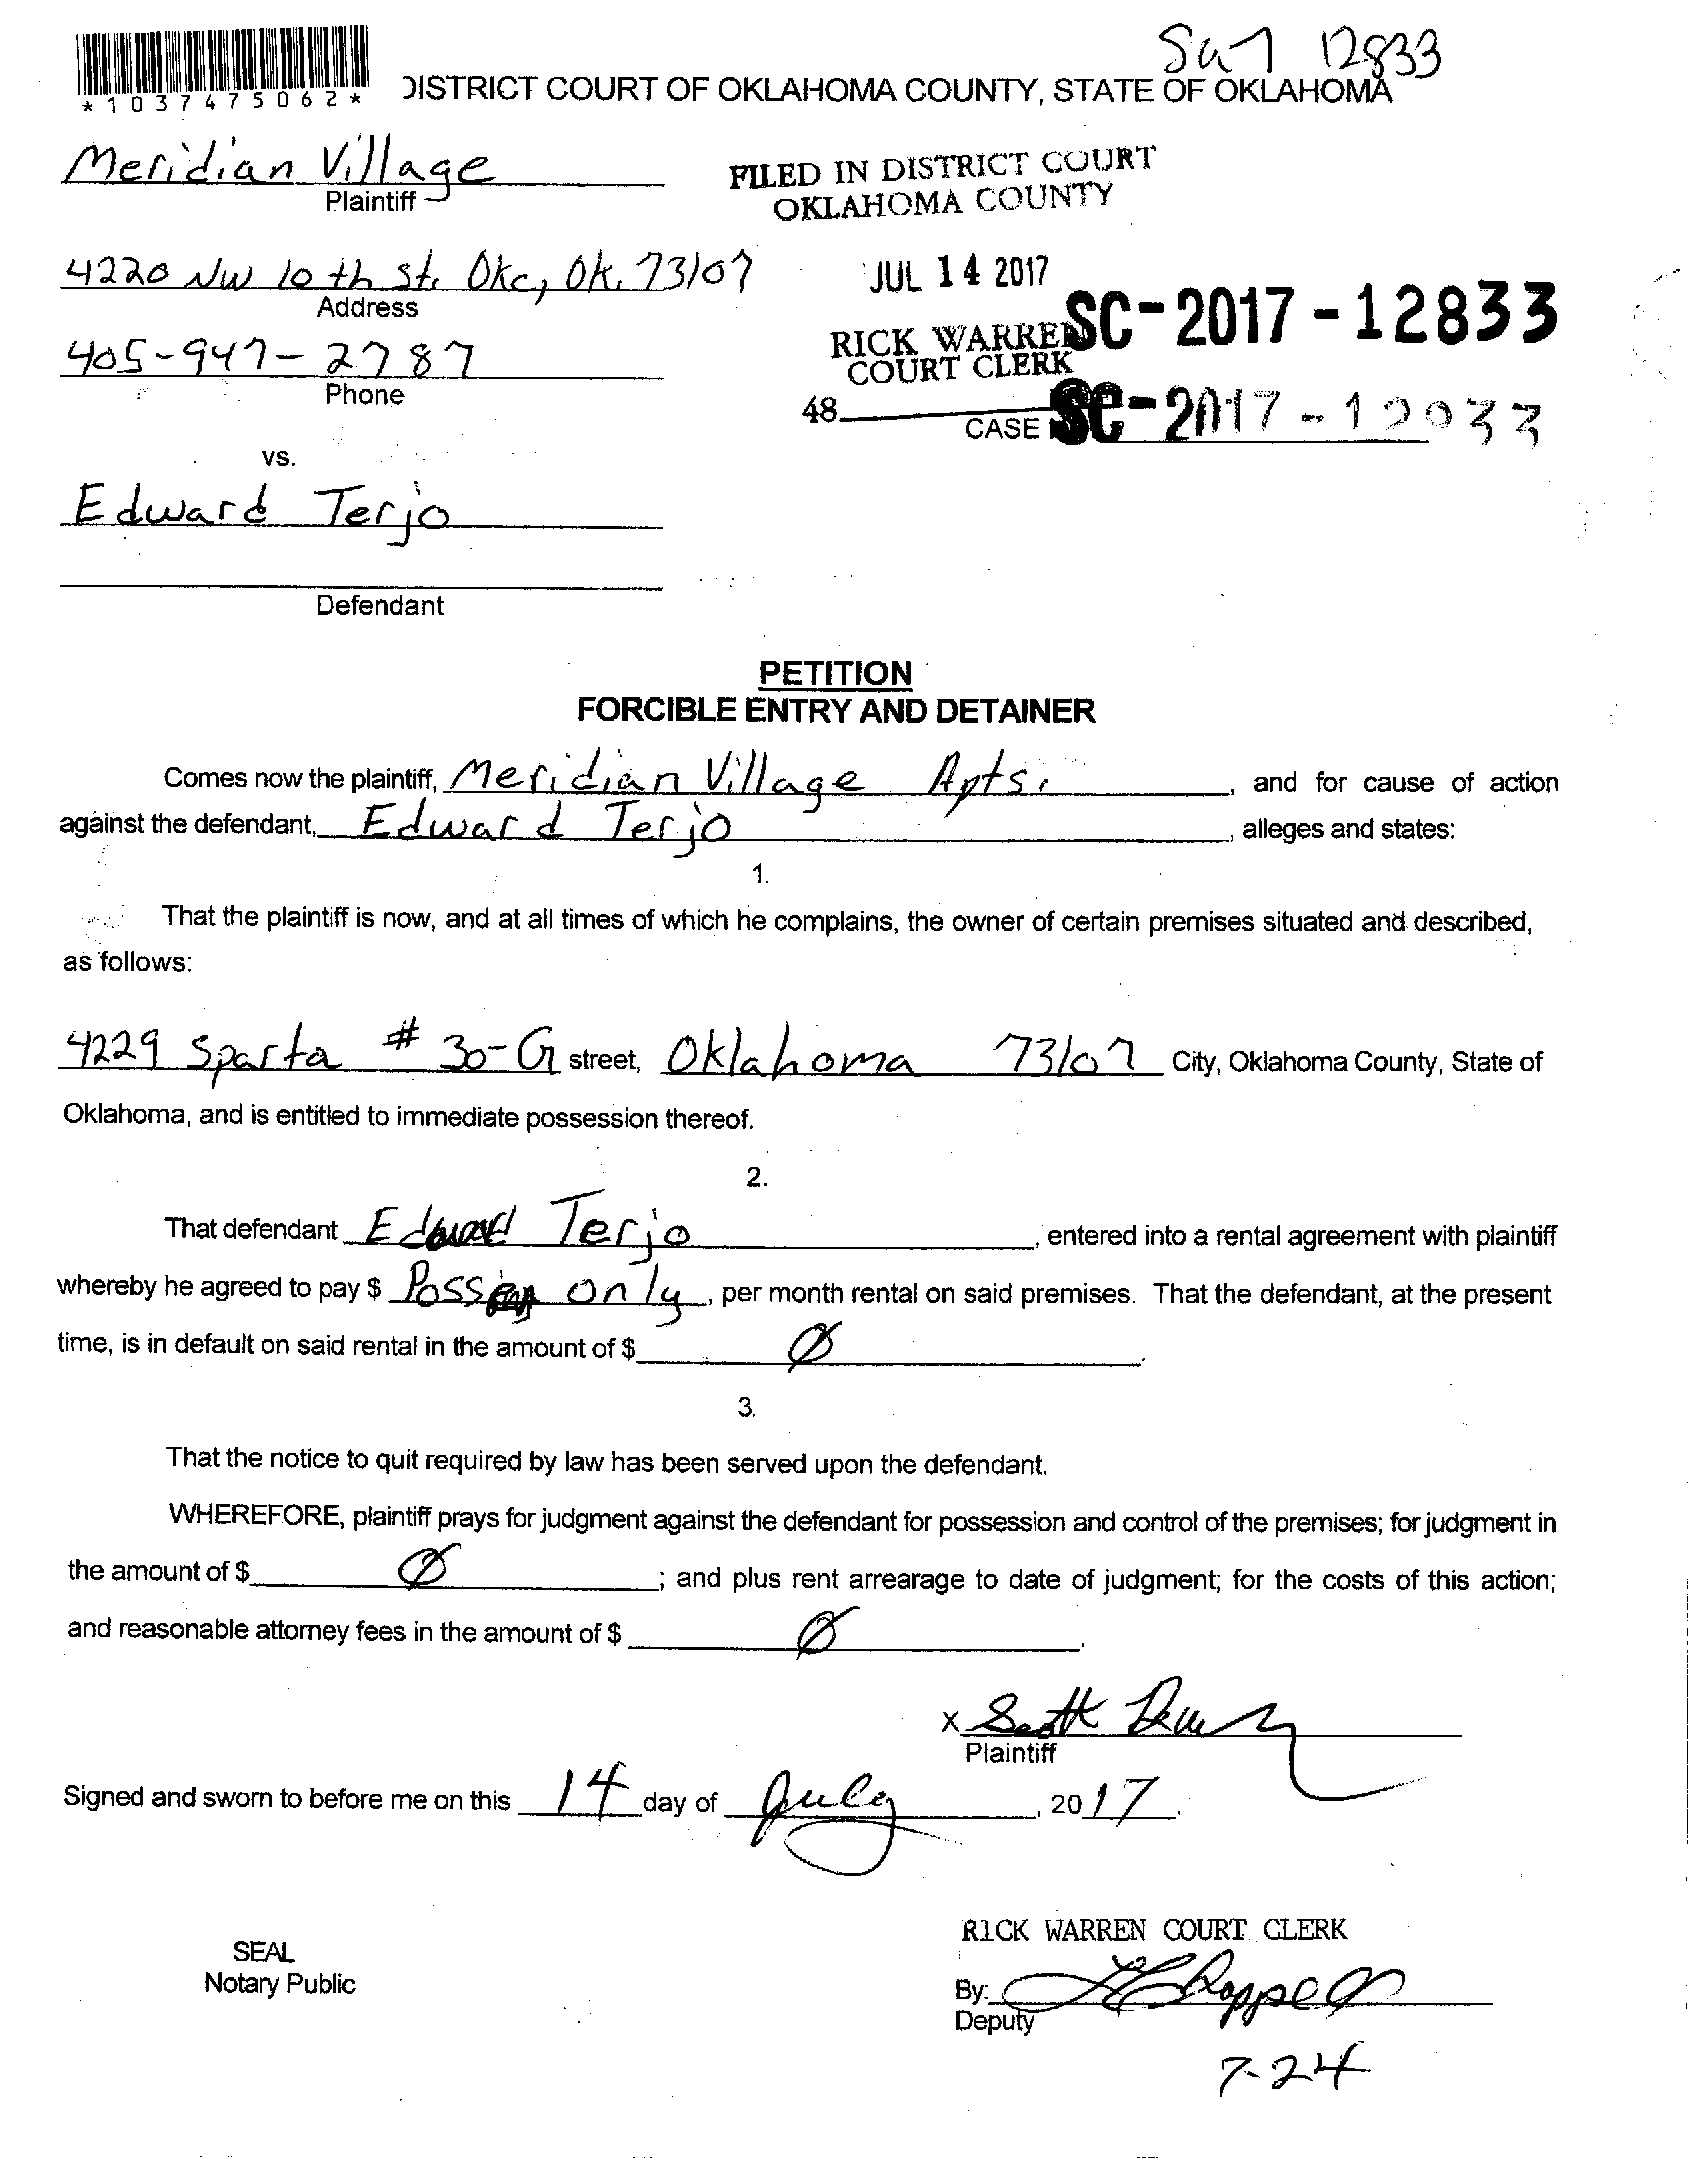 12833
*1037475062*
DISTRICT COURT OF OKLAHOMA COUNTY, STATE OF OKLAHOMA
Meridian Village
Plaintiff
FILED IN DISTRICT COURT
OKLAHOMA COUNTY
4220 NW 10th St. Okc, Ok. 73107
Address
JUL 14 2017
SC-2017-12833
RICK WARREN
COURT CLERK
405-947-2787
Phone
48
CASE SC-2017-
vs.
Edward Terjo
Defendant
PETITION
FORCIBLE ENTRY AND DETAINER
Comes now the plaintiff, Meridian Village Apts. , and for cause of action
against the defendant, Edward Terjo , alleges and states:
1.
That the plaintiff is now, and at all times of which he complains, the owner of certain premises situated and described,
as follows:
4229 Sparta # 30-G street, Oklahoma 73107 City, Oklahoma County, State of
Oklahoma, and is entitled to immediate possession thereof.
2.
That defendant Edward Terjo , entered into a rental agreement with plaintiff
whereby he agreed to pay $ only , per month rental on said premises. That the defendant, at the present
time, is in default on said rental in the amount of $ Ø .
3.
That the notice to quit required by law has been served upon the defendant.
WHEREFORE, plaintiff prays for judgment against the defendant for possession and control of the premises; for judgment in
the amount of $ Ø ; and plus rent arrearage to date of judgment; for the costs of this action;
and reasonable attorney fees in the amount of $ Ø .
x Scott
Plaintiff
Signed and sworn to before me on this 14 day of July , 2017 .
RICK WARREN COURT CLERK
SEAL
Notary Public
By:
Deputy
7-24